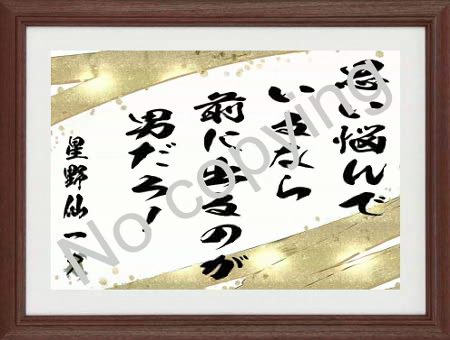 思い悩んで
いるなら
前に出るのが
男だろ！
星野仙一
No copying